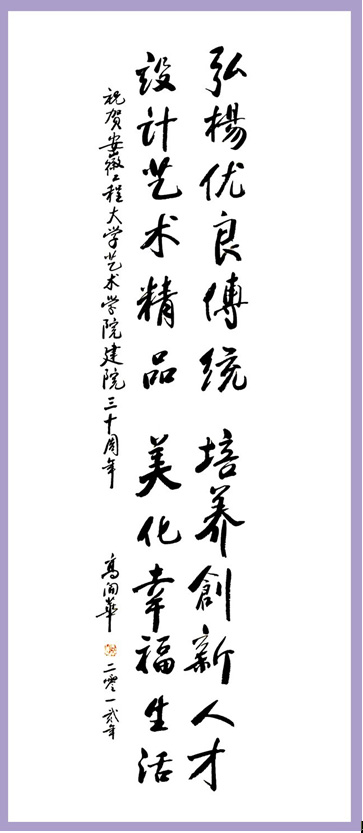 弘楊优良傳统 培养創新人才
設计艺术精品 美化幸福生活
祝贺安徽工程大学艺术学院建院三十周年
髙洵華 二零一贰年